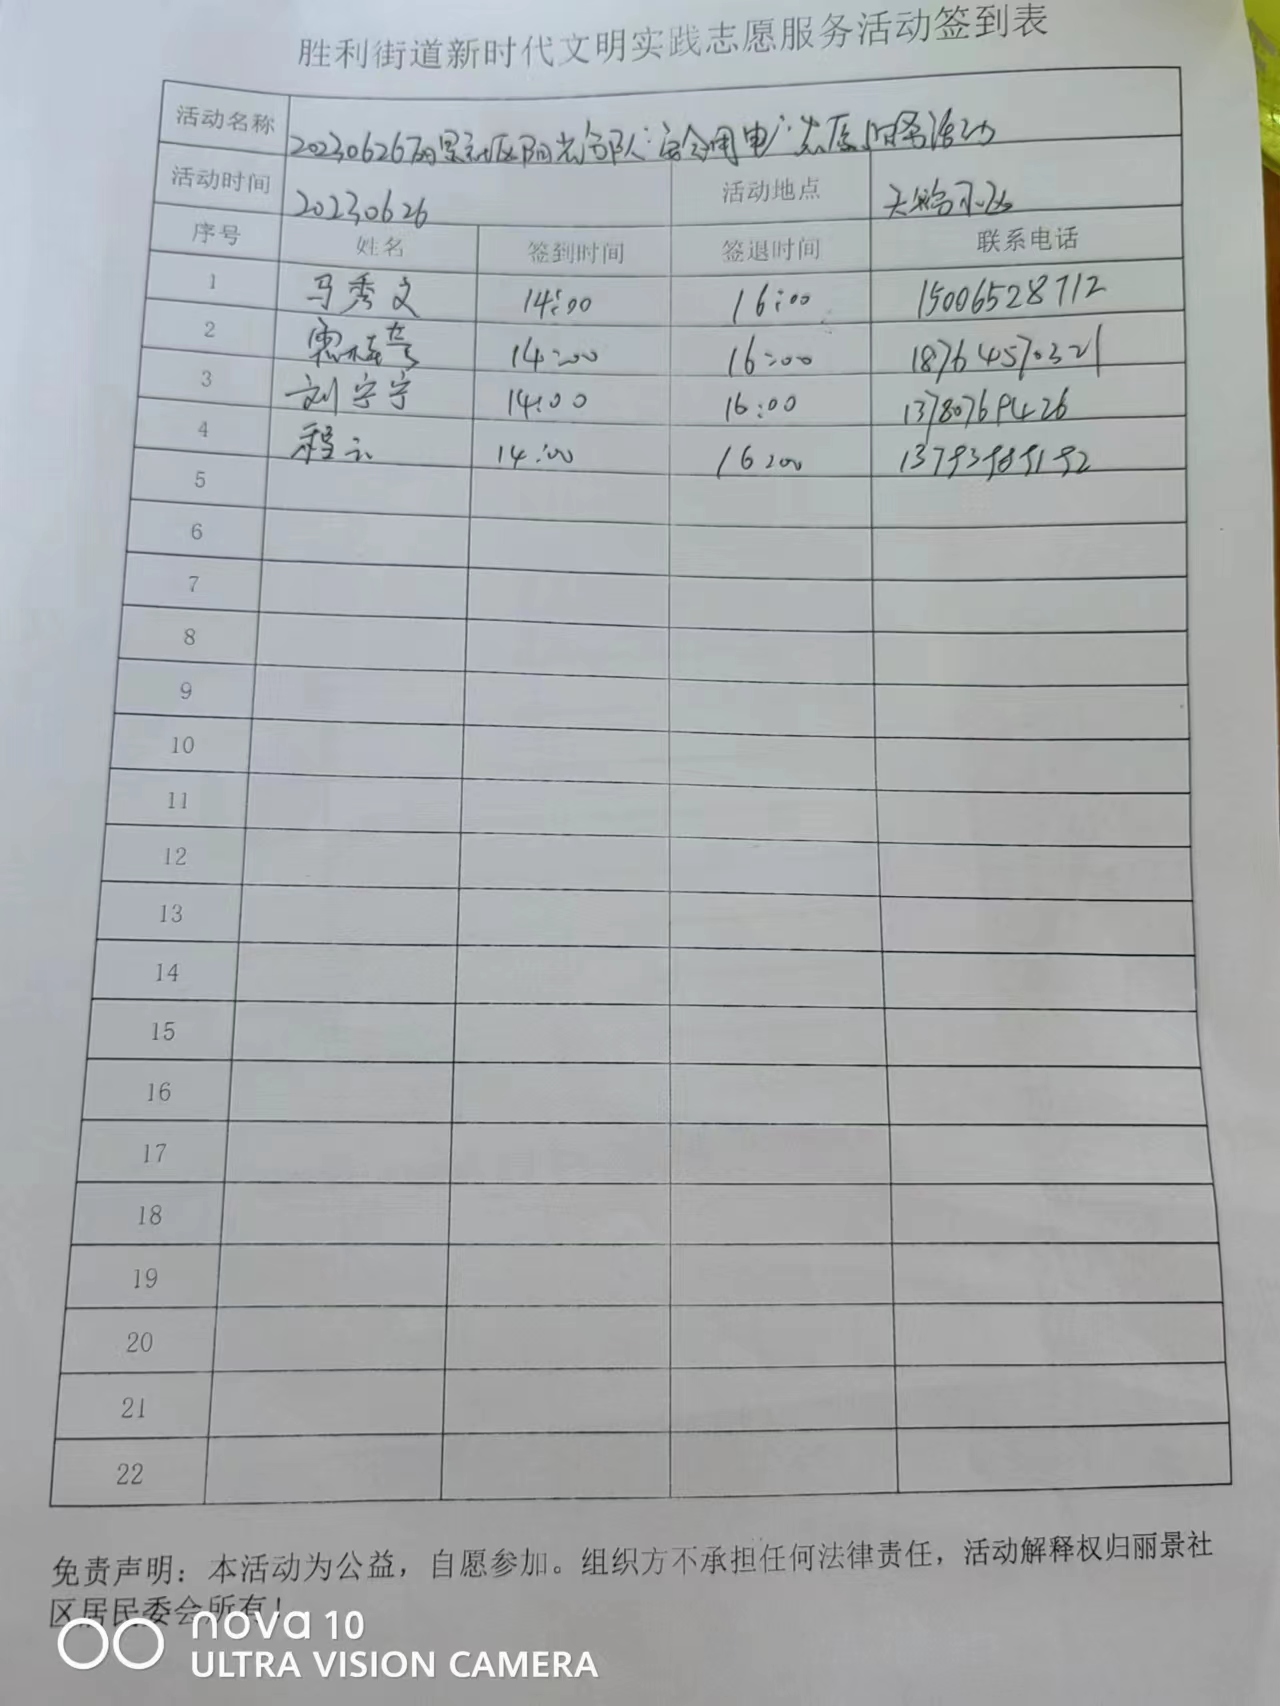 胜利街道新时代文明实践志愿服务活动签到表
活动名称 20230626丽景社区阳光分队“安全用电”志愿服务活动
活动时间 20230626 活动地点 小区
序号 姓名 签到时间 签退时间 联系电话
1 马秀文 14:00 16:00 15006528712
2 14:00 16:00 18764570321
3 刘宁宁 14:00 16:00 13780769426
4 程云 14:00 16:00 13793989192
5
6
7
8
9
10
11
12
13
14
15
16
17
18
19
20
21
22
免责声明：本活动为公益，自愿参加。组织方不承担任何法律责任，活动解释权归丽景社
区居民委会所有！
nova 10
ULTRA VISION CAMERA